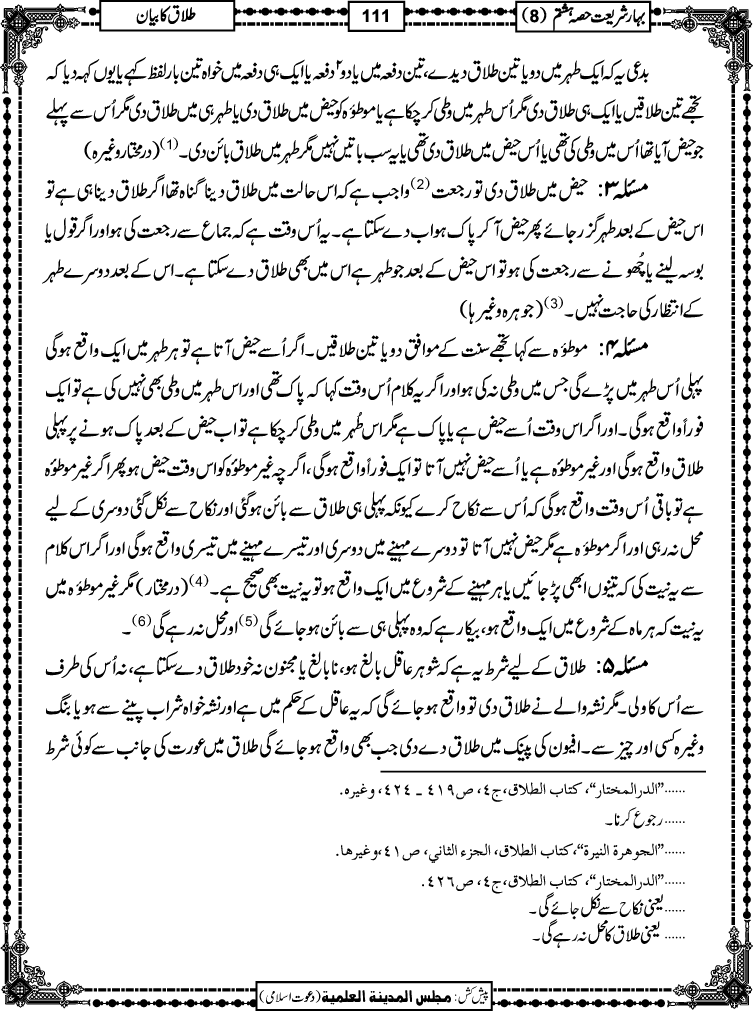 بہار شریعت حصہ ہشتم (8)
111
طلاق کا بیان
بدعی یہ کہ ایک طہر میں دو یا تین طلاق دیدے، تین دفعہ میں یا دو۲ دفعہ یا ایک ہی دفعہ میں خواہ تین بار لفظ کہے یا یوں کہہ دیا کہ
تجھے تین طلاقیں یا ایک ہی طلاق دی مگر اُس طہر میں وطی کر چکا ہے یا موطؤہ کو حیض میں طلاق دی یا طہر ہی میں طلاق دی مگر اُس سے پہلے
جو حیض آیا تھا اُس میں وطی کی تھی یا اُس حیض میں طلاق دی تھی یا یہ سب باتیں نہیں مگر طہر میں طلاق بائن دی۔ (1) (درمختار وغیرہ)
مسئلہ ۳: حیض میں طلاق دی تو رجعت (2) واجب ہے کہ اس حالت میں طلاق دینا گناہ تھا اگر طلاق دینا ہی ہے تو
اس حیض کے بعد طہر گزر جائے پھر حیض آ کر پاک ہو اب دے سکتا ہے۔ یہ اُس وقت ہے کہ جماع سے رجعت کی ہو اور اگر قول یا
بوسہ لینے یا چُھونے سے رجعت کی ہو تو اس حیض کے بعد جو طہر ہے اس میں بھی طلاق دے سکتا ہے۔ اس کے بعد دوسرے طہر
کے انتظار کی حاجت نہیں۔ (3) (جوہرہ وغیرہا)
مسئلہ ۴: موطؤہ سے کہا تجھے سنت کے موافق دو یا تین طلاقیں۔ اگر اُسے حیض آتا ہے تو ہر طہر میں ایک واقع ہوگی
پہلی اُس طہر میں پڑے گی جس میں وطی نہ کی ہو اور اگر یہ کلام اُس وقت کہا کہ پاک تھی اور اس طہر میں وطی بھی نہیں کی ہے تو ایک
فوراً واقع ہوگی۔ اور اگر اس وقت اُسے حیض ہے یا پاک ہے مگر اس طُہر میں وطی کر چکا ہے تو اب حیض کے بعد پاک ہونے پر پہلی
طلاق واقع ہوگی اور غیر موطؤہ ہے یا اُسے حیض نہیں آتا تو ایک فوراً واقع ہوگی، اگرچہ غیر موطؤہ کو اس وقت حیض ہو پھر اگر غیر موطؤہ
ہے تو باقی اُس وقت واقع ہوگی کہ اُس سے نکاح کرے کیونکہ پہلی ہی طلاق سے بائن ہوگئی اور نکاح سے نکل گئی دوسری کے لیے
محل نہ رہی اور اگر موطؤہ ہے مگر حیض نہیں آتا تو دوسرے مہینے میں دوسری اور تیسرے مہینے میں تیسری واقع ہوگی اور اگر اس کلام
سے یہ نیت کی کہ تینوں ابھی پڑ جائیں یا ہر مہینے کے شروع میں ایک واقع ہو تو یہ نیت بھی صحیح ہے۔ (4) (درمختار) مگر غیر موطؤہ میں
یہ نیت کہ ہر ماہ کے شروع میں ایک واقع ہو، بیکار ہے کہ وہ پہلی ہی سے بائن ہو جائے گی (5) اور محل نہ رہے گی (6) ۔
مسئلہ ۵: طلاق کے لیے شرط یہ ہے کہ شوہر عاقل بالغ ہو، نابالغ یا مجنون نہ خود طلاق دے سکتا ہے، نہ اُس کی طرف
سے اُس کا ولی۔ مگر نشہ والے نے طلاق دی تو واقع ہو جائے گی کہ یہ عاقل کے حکم میں ہے اور نشہ خواہ شراب پینے سے ہو یا بنگ
وغیرہ کسی اور چیز سے۔ افیون کی پینک میں طلاق دے دی جب بھی واقع ہو جائے گی طلاق میں عورت کی جانب سے کوئی شرط
......”الدرالمختار“، کتاب الطلاق، ج٤، ص٤١٩ ـ ٤٢٤، وغیرہ.
......رجوع کرنا۔
......”الجوهرة النيرة“، کتاب الطلاق، الجزء الثاني، ص٤١، وغیرها.
......”الدرالمختار“، کتاب الطلاق، ج٤، ص٤٢٦.
......یعنی نکاح سے نکل جائے گی۔
......یعنی طلاق کا محل نہ رہے گی۔
پیش کش: مجلس المدینة العلمیة (دعوت اسلامی)